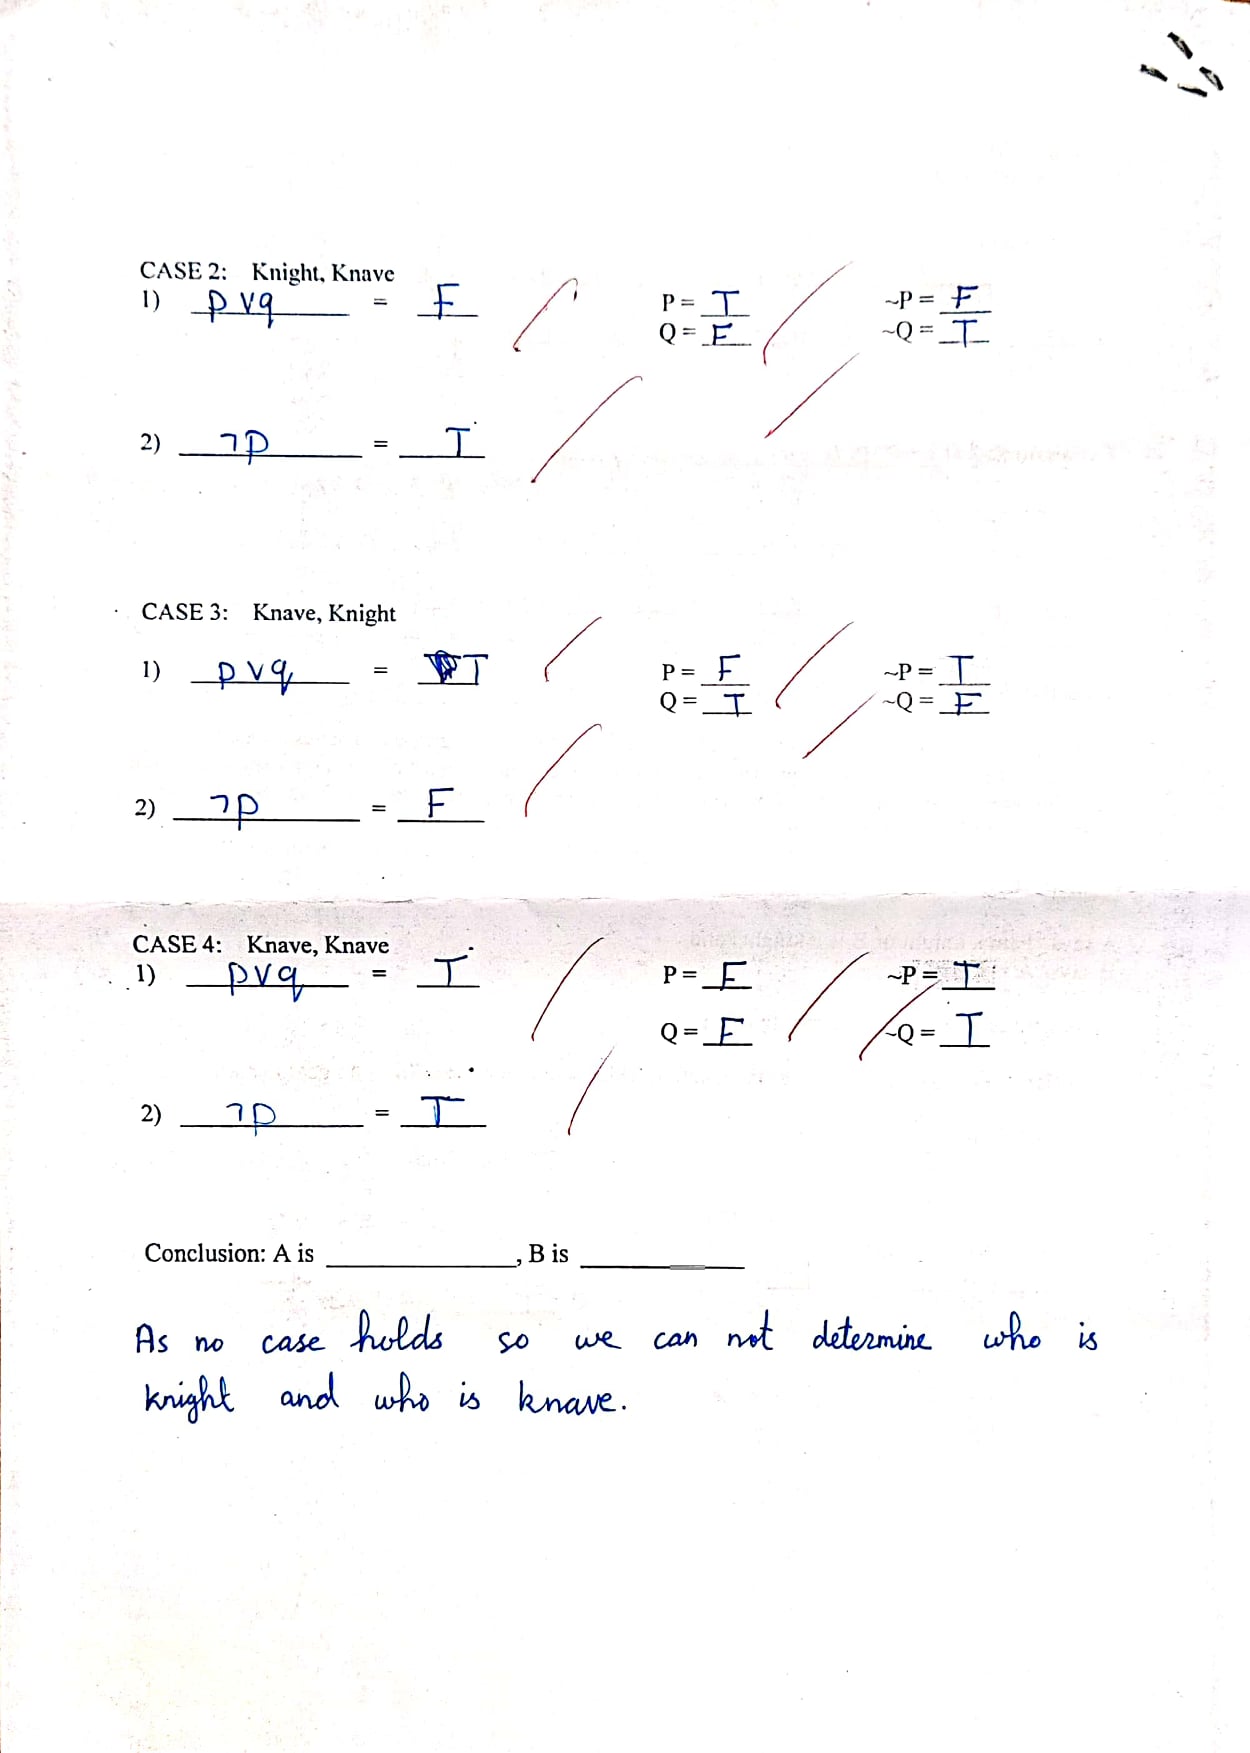 CASE 2: Knight, Knave
1) p ∨ q = F P = T ~P = F
Q = F ~Q = T
2) ¬p = T
CASE 3: Knave, Knight
1) p ∨ q = T P = F ~P = T
Q = T ~Q = F
2) ¬p = F
CASE 4: Knave, Knave
1) p ∨ q = T P = F ~P = T
Q = F ~Q = T
2) ¬p = T
Conclusion: A is ____________, B is ____________
As no case holds so we can not determine who is
knight and who is knave.